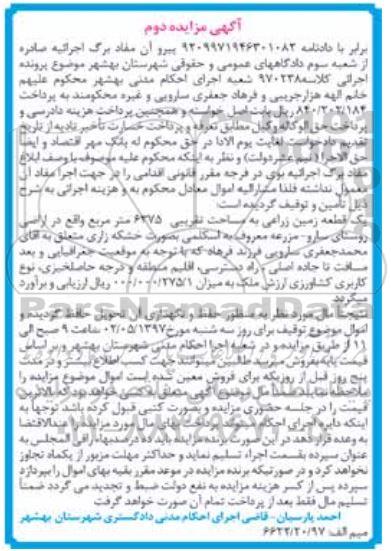 آگهی مزایده دوم
برابر با دادنامه ۹۲۰۹۹۷۱۹۴۶۳۰۱۰۸۳ پیرو آن مفاد برگ اجرائیه صادره
از شعبه سوم دادگاههای عمومی و حقوقی شهرستان بهشهر موضوع پرونده
اجرائی کلاسه ۹۷۰۲۳۸ شعبه اجرای احکام مدنی بهشهر محکوم علیهم
خانم الهه هزارجریبی و فرهاد جعفری سارویی و غیره محکومند به پرداخت
۸۴۰/۲۰۲/۱۸۴ ریال بابت اصل خواسته و همچنین پرداخت هزینه دادرسی و
پرداخت حق الوکاله وکیل مطابق تعرفه و پرداخت خسارت تأخیر تادیه از تاریخ
تقدیم دادخواست لغایت یوم الادا در حق محکوم له بانک مهر اقتصاد و ایضا
حق الاجرا (نیم عشر دولت) و نظر به اینکه محکوم علیه موصوف با وصف ابلاغ
مفاد برگ اجرائیه بوی در فرجه مقرر قانونی اقدامی را در جهت اجرا مفاد آن
معمول نداشته فلذا مشارالیه اموال معادل محکوم به و هزینه اجرائی به شرح
ذیل تأمین و توقیف گردیده است:
یک قطعه زمین زراعی به مساحت تقریبی ۶۳۷۵ متر مربع واقع در اراضی
روستای سارو- مزرعه معروف به اسکلمی بصورت خشکه زاری متعلق به آقای
محمدجعفری سارویی فرزند فرهاد که با توجه به موقعیت جغرافیایی و بعد
مسافت تا جاده اصلی، راه دسترسی، اقلیم منطقه و درجه حاصلخیزی، نوع
کاربری کشاورزی ارزش ملک به میزان ۱/۲۷۵/۰۰۰/۰۰۰ ریال ارزیابی و برآورد
میگردد.
نتیجتا مال مورد نظر به منظور حفظ و نگهداری آن تحویل حافظ گردیده و
اموال موضوع توقیف برای روز سه شنبه مورخ ۰۲/۰۵/۱۳۹۷ ساعت ۹ صبح الی
۱۱ از طریق مزایده و در شعبه اجرا احکام مدنی شهرستان بهشهر و بر اساس
قیمت پایه بفروش میرسد طالبین میتوانند جهت کسب اطلاع بیشتر و در مدت
پنج روز قبل از روزیکه برای فروش معین شده است اموال موضوع مزایده را
ملاحظه نمایند مال موضوع آگهی متعلق به کسی خواهد بود که بالاترین
قیمت را در جلسه حضوری مزایده و بصورت کتبی قبول کرده باشد توجها به
اینکه دایره اجرای احکام در پرداخت بهای مال مورد مزایده میتواند عندالاقتضا
به وعده قرار دهد در این صورت برنده مزایده باید ده درصد بهاء را فی المجلس به
عنوان سپرده بقسمت اجراء تسلیم نماید و حداکثر مهلت مزبور از یکماه تجاوز
نخواهد کرد و در صورتیکه برنده مزایده در موعد مقرر بقیه بهای اموال را نپردازد
سپرده پس از کسر هزینه مزایده به نفع دولت ضبط و تجدید می گردد ضمناً
تسلیم مال فقط بعد از پرداخت تمام آن صورت خواهد گرفت
احمد پارسیان- قاضی اجرای احکام مدنی دادگستری شهرستان بهشهر
میم الف: ۶۶۲۲/۲۰/۹۷
ParsNamadData